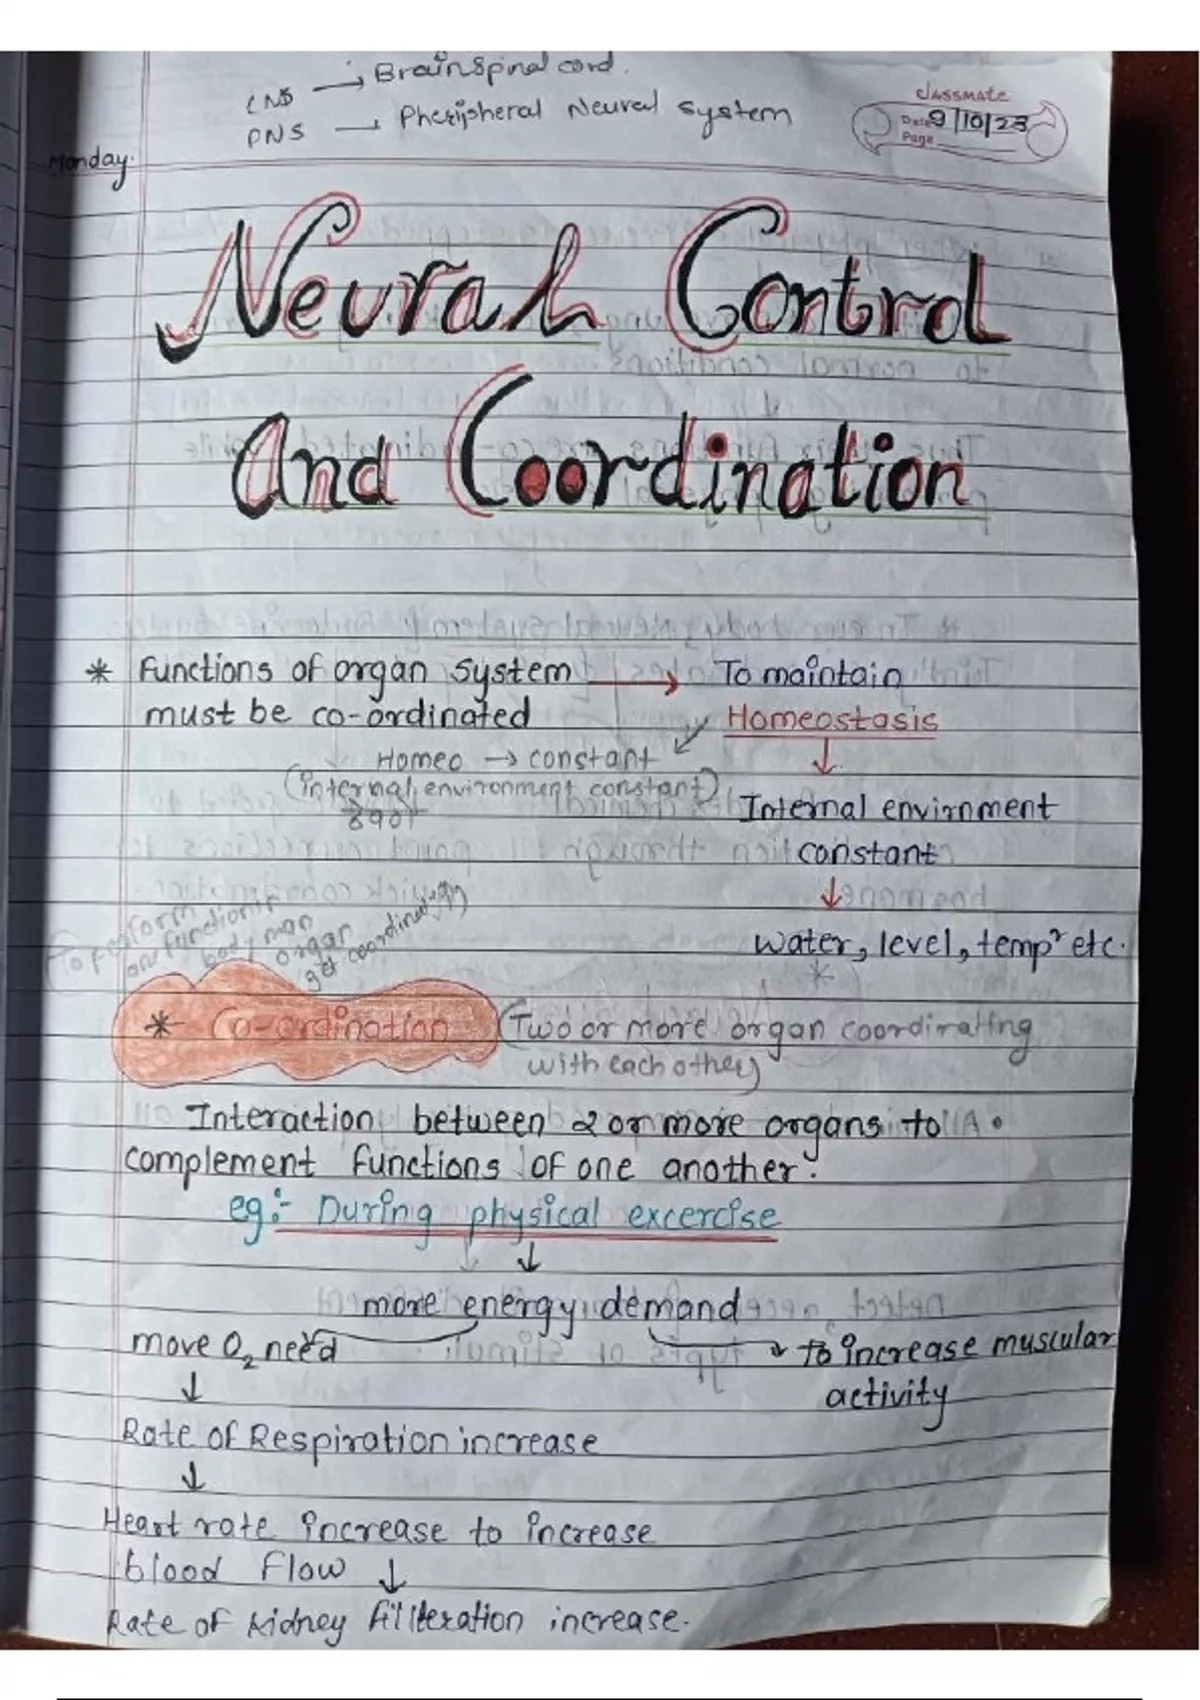 CNS → Brain spinal cord.
PNS → Pheripheral Neural system
classmate
Date 9/10/23
Page
Monday.
Neural Control
And Coordination
* Functions of organ system → To maintain
must be co-ordinated Homeostasis
Homeo → constant ↓
(internal environment constant)
Internal envirnment
constant
↓
water, level, temp^r etc.
(To perform
one function
body
organ
get coordinated
* Co-ordination (Two or more organ coordinating
with each other)
Interaction between 2 or more organs to
complement functions of one another.
eg:- During physical excercise
↓
more energy demand
move O₂ need → to increase muscular
↓ activity
Rate of Respiration increase
↓
Heart rate increase to increase
blood flow ↓
Rate of kidney filiteration increase.